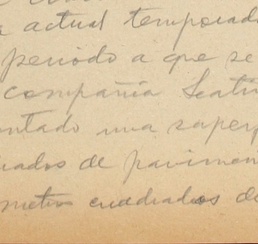 actual temporada
periodo a que se
compañia Teatr
ntado una super
uados de pavimen
metros cuadrados de